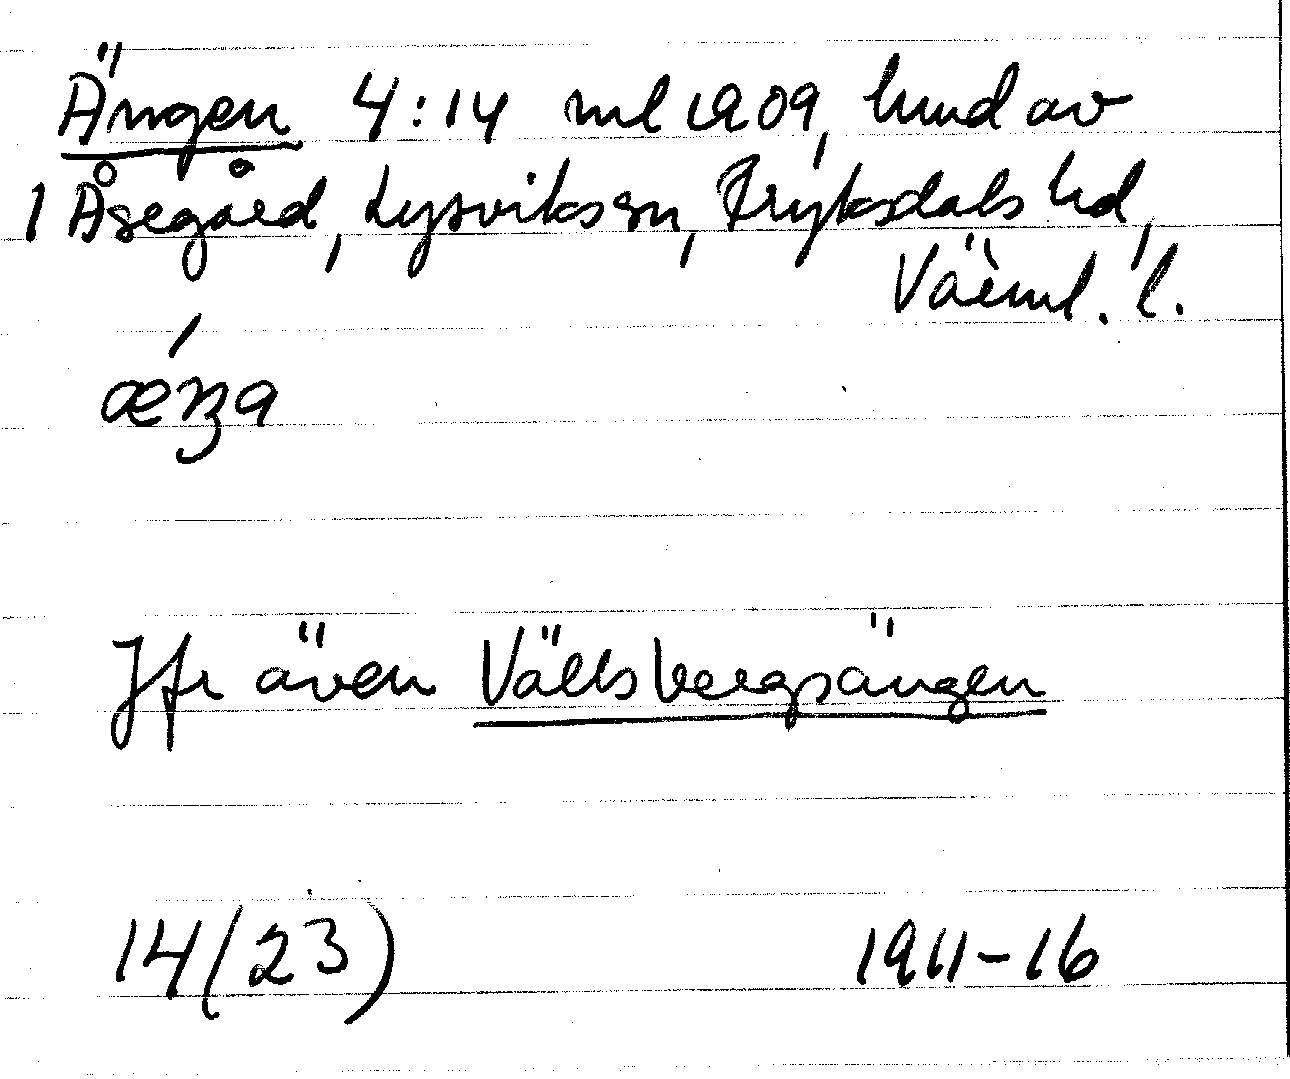 Ängen 4:14 ml 1909, hmd av
1 Åsegård, Lysviks sn, Fryksdals hd,
Värml. l.
æ´ŋa
Jfr även Vällsbergsängen
14(23) 1911-16